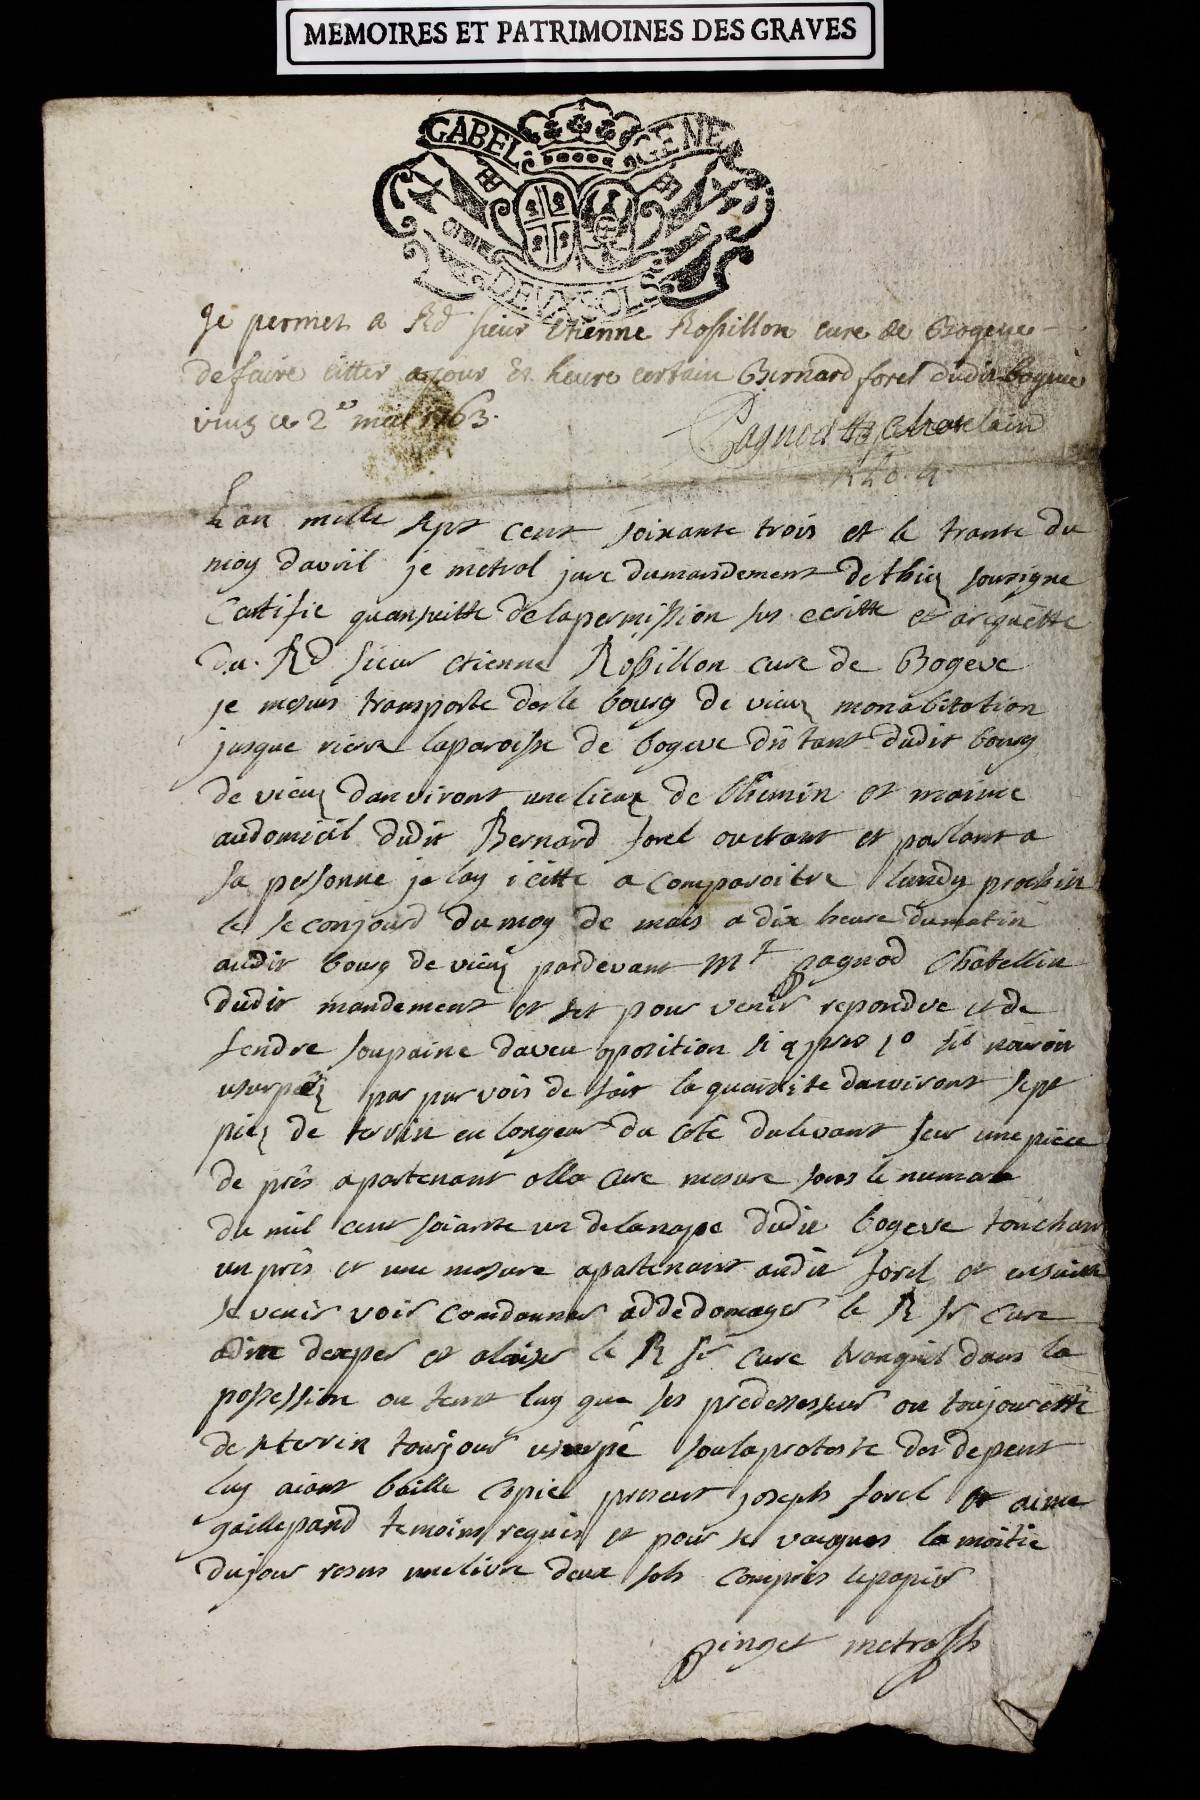 MEMOIRES ET PATRIMOINES DES GRAVES
GABEL GENE
DEUX SOL
Je permet a Rd sieur Etienne Rossillon cure de Bogeve
de faire citter a jour et heure certain Bernard forel dudit bogeve
viuz ce 2e mai 1763.
Pagnod chatelain
L'an mille sept cent soixante trois et le trante du
moy davril je metral jure du mandement de thiez sousigne
Certifie quansuitte de la permission sus ecritte et a requette
du Rd sieur etienne Rossillon cure de Bogeve
je mesuis transporte des le bourg de viuz mon abitation
jusque riere laparoisse de bogeve distant dudit bourg
de viuz danviront une lieux de Chemin et moime
audomicil dudit Bernard forel ou etant et parlant a
sa personne je lay icitte a comparoitre lundy prochin
le seconjourd du moy de mais a dix heure dumatin
audit bourg de viuz pardevant Mr pagnod Chatellin
dudit mandement et set pour venir repondre et de
fendre soupaine daveu oposition
usurpez par pur vois de fait la quantite danviront sept
piez de terrin en longeur du cote dulevant seur une piece
de prés apartenant alla cure mesure sous le numero
du mil cent soiante un de lamape dudit bogeve touchan
un prés et une mesure apartenant audit forel et ensuitte
se venir voir condanner addedomager le R sr cure
adire dexper et alaiser le R sr cure tranquil dans la
possession ou tant luy que ses predessesseur on toujour été
de se terrin toujour usurpé soulaproteste des depent
luy aiant baille Copie present joseph forel et aime
gaillepand temoins requis et pour se vacques la moitie
dujour resus une livre deux sols compris lepapier
pinget metral